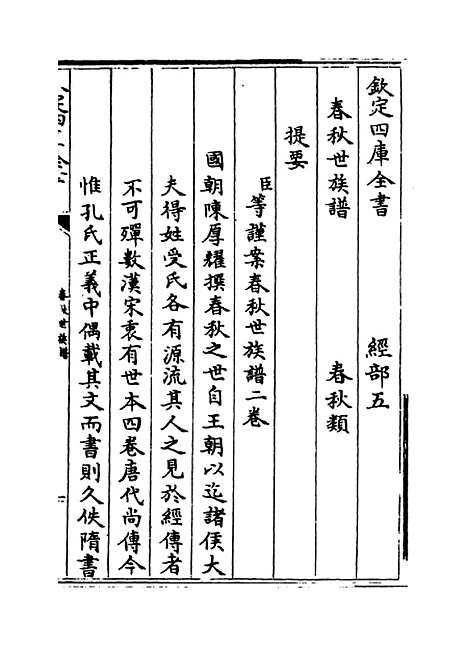 欽定四庫全書　　　經部五
春秋世族譜　　　春秋類
提要
臣等謹案春秋世族譜二卷
國朝陳厚耀撰春秋之世自王朝以迄諸侯大
夫得姓受氏各有源流其人之見於經傳者
不可殫數漢宋衷有世本四卷唐代尚傳今
惟孔氏正義中偶載其文而書則久佚隋書
春秋世族譜
一